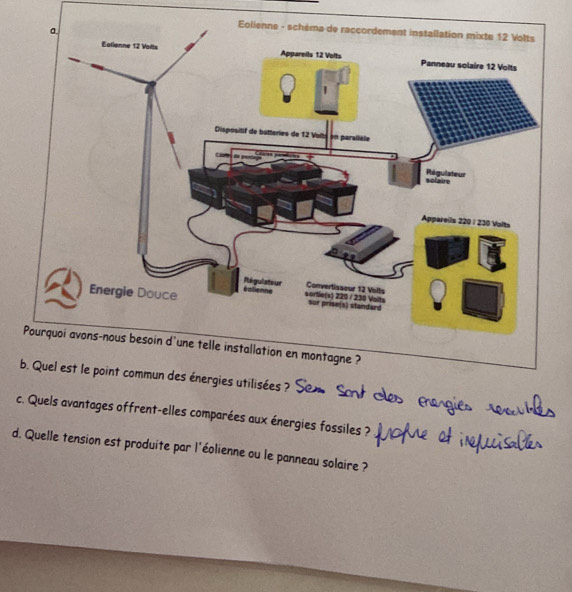 Eolienne - schéma de raccordement installation mixte 12 Volts
a.
Eolienne 12 Volts
Appareils 12 Volts
Panneau solaire 12 Volts
Dispositif de batteries de 12 Volts en parallèle
Régulateur
solaire
Appareils 220 / 230 Volts
Régulateur
éolienne
Convertisseur 12 Volts
sortie(s) 220 / 230 Volts
sur prise(s) standard
Energie Douce
Pourquoi avons-nous besoin d'une telle installation en montagne ?
b. Quel est le point commun des énergies utilisées ? sont des energies
c. Quels avantages offrent-elles comparées aux énergies fossiles ? propre et
d. Quelle tension est produite par l'éolienne ou le panneau solaire ?